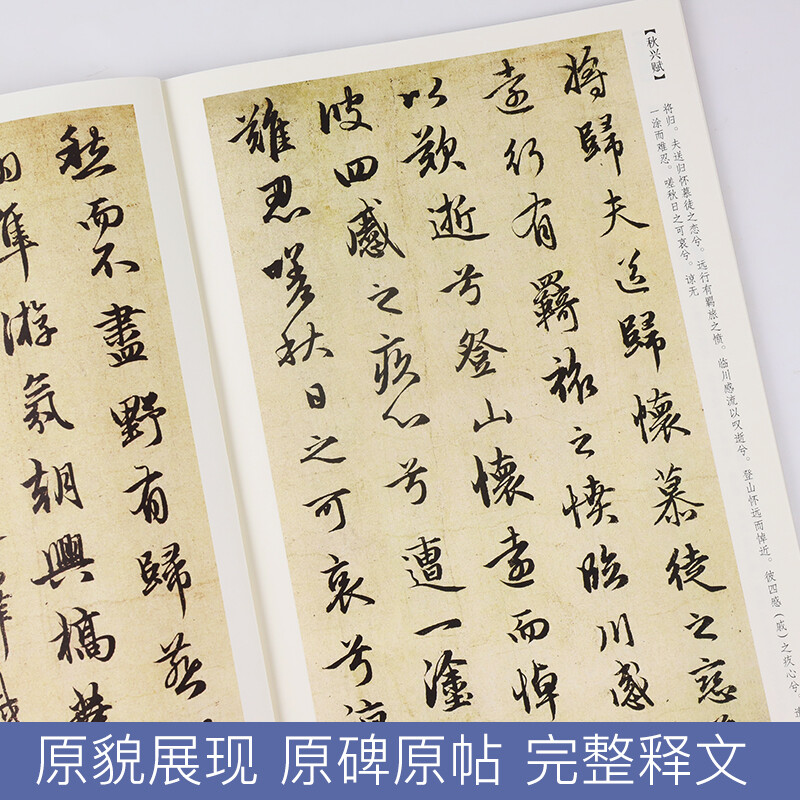 【秋兴赋】
将归。夫送归怀慕徒之恋兮。远行有羁旅之愤。临川感流以叹逝兮。登山怀远而悼近。彼四感（戚）之疚心兮。遭
一涂而难忍。嗟秋日之可哀兮。谅无
將歸夫送歸懷慕徒之戀
遠行有羈旅之憤臨川感
以歎逝兮登山懷遠而悼
彼四感之疚心兮遭一塗
難忍嗟秋日之可哀兮諒
愁而不盡野有歸燕
隼游氛朝興槁葉
原貌展现 原碑原帖 完整释文